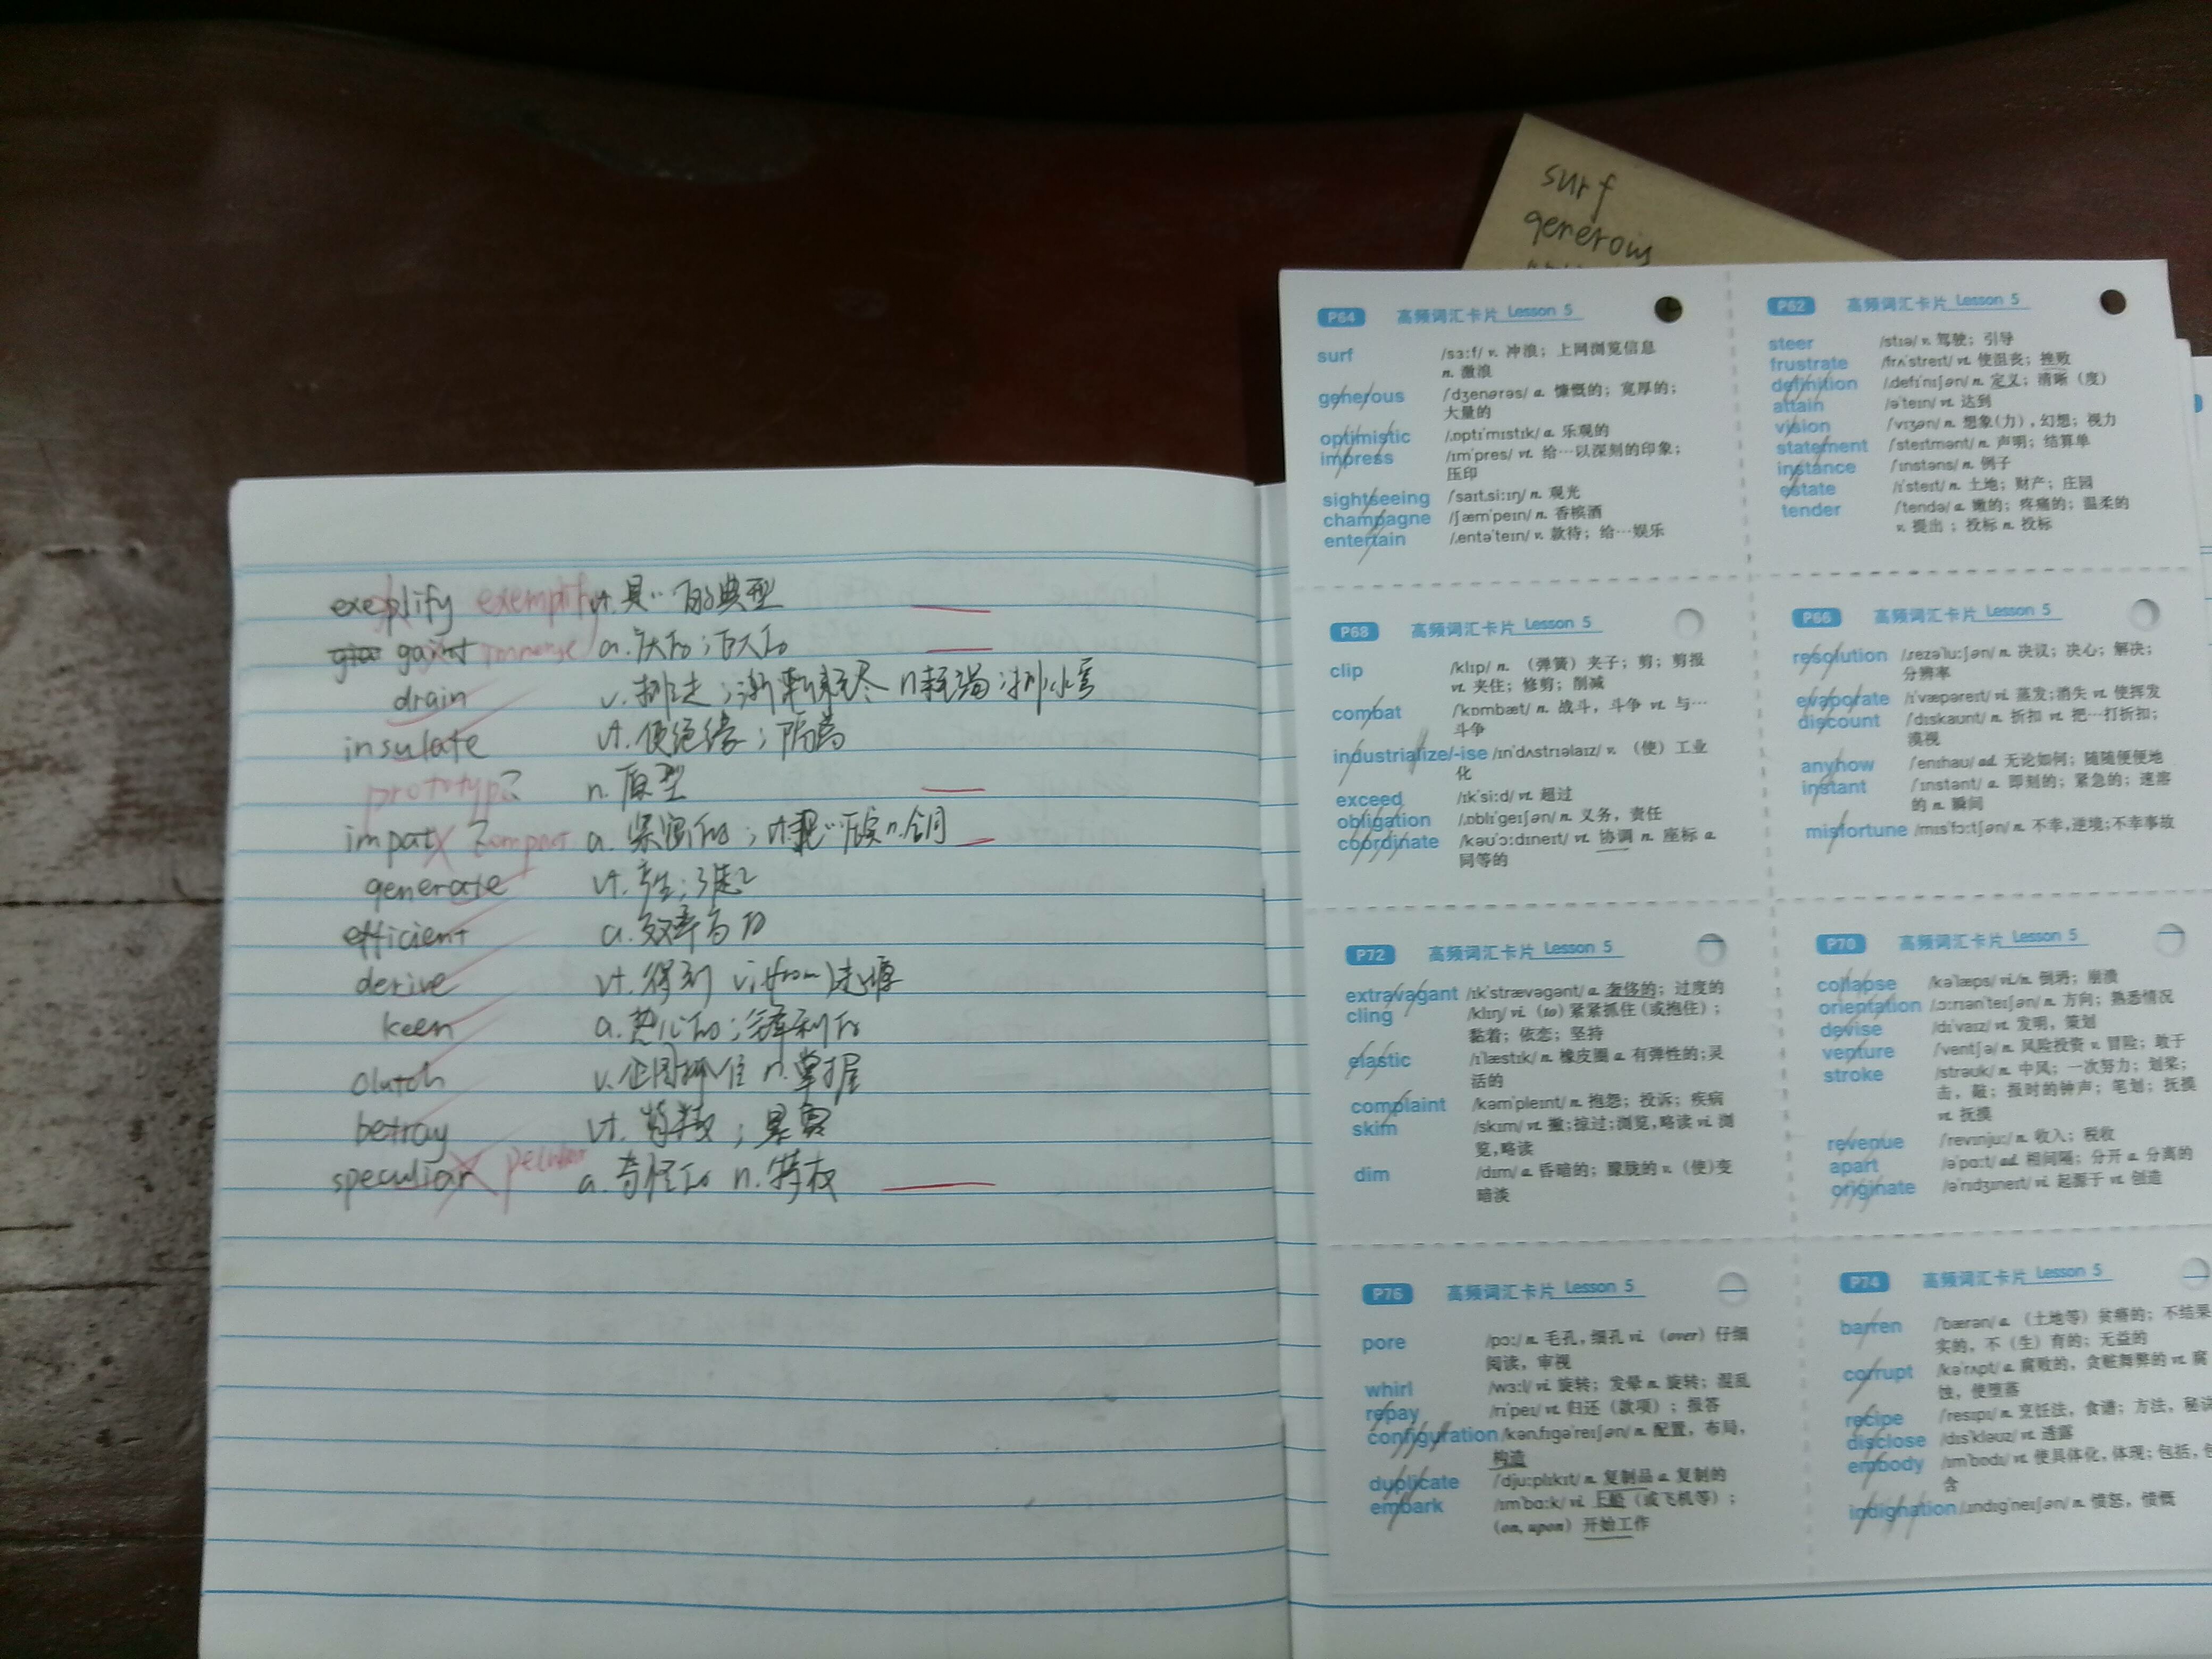 surf
generous
exeplify exemplify vt.具…的典型
gaint immense a.庞大的;巨大的
drain v.排走;渐渐耗尽 n.耗竭;排水管
insulate vt.使绝缘;隔离
prototype? n.原型
impat compact a.紧密的;vt.把…压实 n.合同
generate vt.产生;引起
efficient a.效率高的
derive vt.得到 vi.(from)起源
keen a.热心的;锋利的
clutch v.企图抓住 n.掌握
betray vt.背叛;暴露
speculiar peculiar a.奇怪的 n.特权
P64 高频词汇卡片 Lesson 5
surf /sɜːf/ v. 冲浪;上网浏览信息
n. 激浪
generous /ˈdʒenərəs/ a. 慷慨的;宽厚的;
大量的
optimistic /ˌɒptɪˈmɪstɪk/ a. 乐观的
impress /ɪmˈpres/ vt. 给…以深刻的印象;
压印
sightseeing /ˈsaɪtˌsiːɪŋ/ n. 观光
champagne /ʃæmˈpeɪn/ n. 香槟酒
entertain /ˌentəˈteɪn/ v. 款待;给…娱乐
P62 高频词汇卡片 Lesson 5
steer /stɪə/ v. 驾驶;引导
frustrate /frʌˈstreɪt/ vt. 使沮丧;挫败
definition /ˌdefɪˈnɪʃən/ n. 定义;清晰(度)
attain /əˈteɪn/ vt. 达到
vision /ˈvɪʒən/ n. 想象(力),幻想;视力
statement /ˈsteɪtmənt/ n. 声明;结算单
instance /ˈɪnstəns/ n. 例子
estate /ɪˈsteɪt/ n. 土地;财产;庄园
tender /ˈtendə/ a. 嫩的;疼痛的;温柔的
v. 提出;投标 n. 投标
P68 高频词汇卡片 Lesson 5
clip /klɪp/ n. (弹簧)夹子;剪;剪报
vt. 夹住;修剪;削减
combat /ˈkɒmbæt/ n. 战斗,斗争 vt. 与…
斗争
industrialize/-ise /ɪnˈdʌstrɪəlaɪz/ v. (使)工业
化
exceed /ɪkˈsiːd/ vt. 超过
obligation /ˌɒblɪˈgeɪʃən/ n. 义务,责任
coordinate /kəʊˈɔːdɪneɪt/ vt. 协调 n. 座标 a.
同等的
P66 高频词汇卡片 Lesson 5
resolution /ˌrezəˈluːʃən/ n. 决议;决心;解决;
分辨率
evaporate /ɪˈvæpəreɪt/ vi. 蒸发;消失 vt. 使挥发
discount /ˈdɪskaunt/ n. 折扣 vt. 把…打折扣;
漠视
anyhow /ˈenɪhau/ ad. 无论如何;随随便便地
instant /ˈɪnstənt/ a. 即刻的;紧急的;速溶
的 n. 瞬间
misfortune /mɪsˈfɔːtʃən/ n. 不幸,逆境;不幸事故
P72 高频词汇卡片 Lesson 5
extravagant /ɪkˈstrævəgənt/ a. 奢侈的;过度的
cling /klɪŋ/ vi. (to)紧紧抓住(或抱住);
黏着;依恋;坚持
elastic /ɪˈlæstɪk/ n. 橡皮圈 a. 有弹性的;灵
活的
complaint /kəmˈpleɪnt/ n. 抱怨;投诉;疾病
skim /skɪm/ vt. 撇;掠过;浏览,略读 vi. 浏
览,略读
dim /dɪm/ a. 昏暗的;朦胧的 v. (使)变
暗淡
P70 高频词汇卡片 Lesson 5
collapse /kəˈlæps/ vi./n. 倒坍;崩溃
orientation /ˌɔːrɪənˈteɪʃən/ n. 方向;熟悉情况
devise /dɪˈvaɪz/ vt. 发明,策划
venture /ˈventʃə/ n. 风险投资 v. 冒险;敢于
stroke /strəuk/ n. 中风;一次努力;划桨;
击,敲;报时的钟声;笔划;抚摸
vt. 抚摸
revenue /ˈrevɪnjuː/ n. 收入;税收
apart /əˈpɑːt/ ad. 相间隔;分开 a. 分离的
originate /əˈrɪdʒɪneɪt/ vi. 起源于 vt. 创造
P76 高频词汇卡片 Lesson 5
pore /pɔː/ n. 毛孔,细孔 vi. (over)仔细
阅读,审视
whirl /wɜːl/ vi. 旋转;发晕 n. 旋转;混乱
repay /rɪˈpeɪ/ vt. 归还(款项);报答
configuration /kənˌfɪgəˈreɪʃən/ n. 配置,布局,
构造
duplicate /ˈdjuːplɪkɪt/ n. 复制品 a. 复制的
embark /ɪmˈbɑːk/ vi. 上船(或飞机等);
(on, upon)开始工作
P74 高频词汇卡片 Lesson 5
barren /ˈbærən/ a. (土地等)贫瘠的;不结果
实的,不(生)育的;无益的
corrupt /kəˈrʌpt/ a. 腐败的,贪赃舞弊的 vt. 腐
蚀,使堕落
recipe /ˈresɪpɪ/ n. 烹饪法,食谱;方法,秘诀
disclose /dɪsˈkləuz/ vt. 透露
embody /ɪmˈbɒdɪ/ vt. 使具体化,体现;包括,包
含
indignation /ˌɪndɪgˈneɪʃən/ n. 愤怒,愤慨